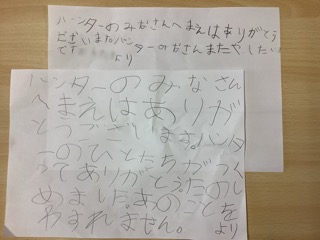 ハンターのみなさんへまえはありがとう
ございますハンターのおさんまたやしたい
です
より
ハンターのみなさん
へまえはありが
とうございます。ハンタ
ーのひとたちがつく
ってありがとう。たのし
めました。あのことを
わすれません。
より